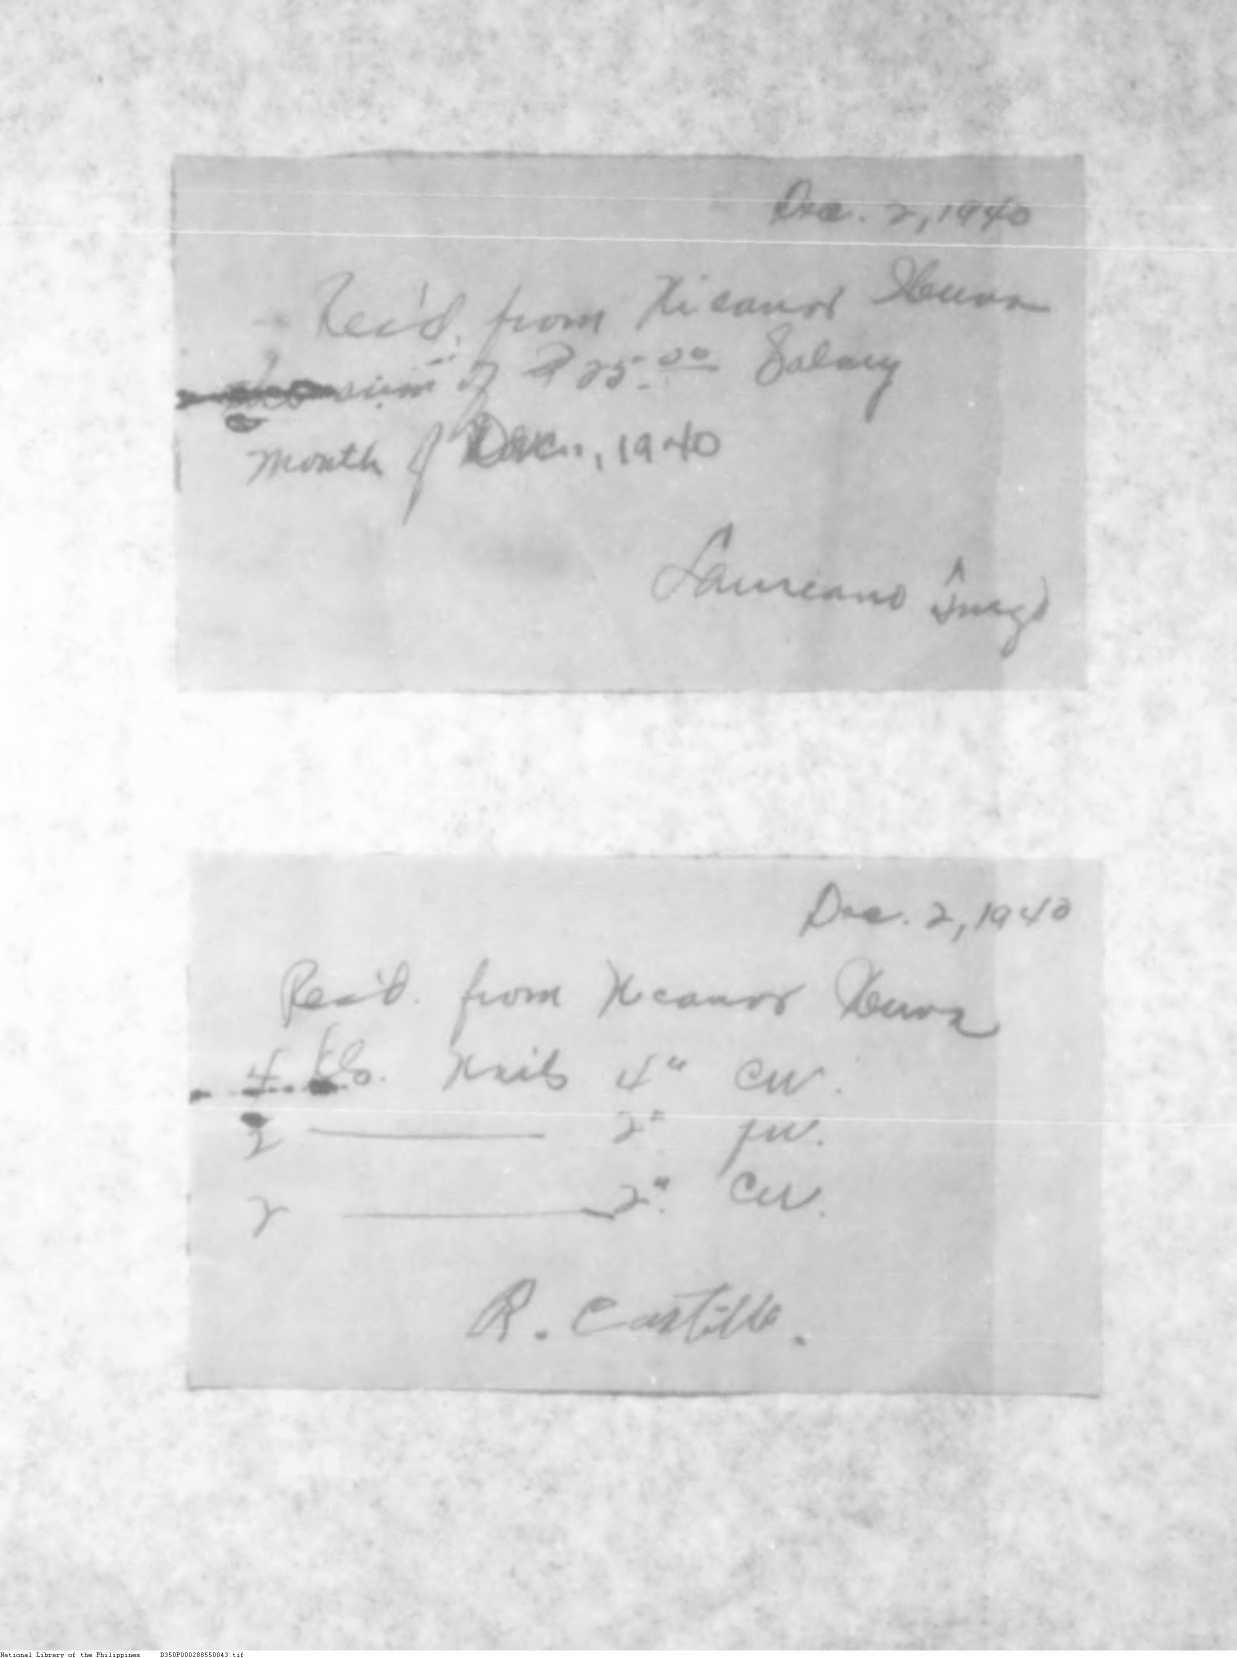 Dec. 2, 1940
Rec'd. from Nicanor
sum of ₱ 25.00 Salary
month of Dec., 1940
Laureano
Dec. 2, 1940
Rec'd. from Nicanor
4 Kls. Nails 4" CW.
2 ——— 2" fw.
2 ——— 2" CW.
R. Castillo.
National Library of the Philippines D350P000288550043.tif